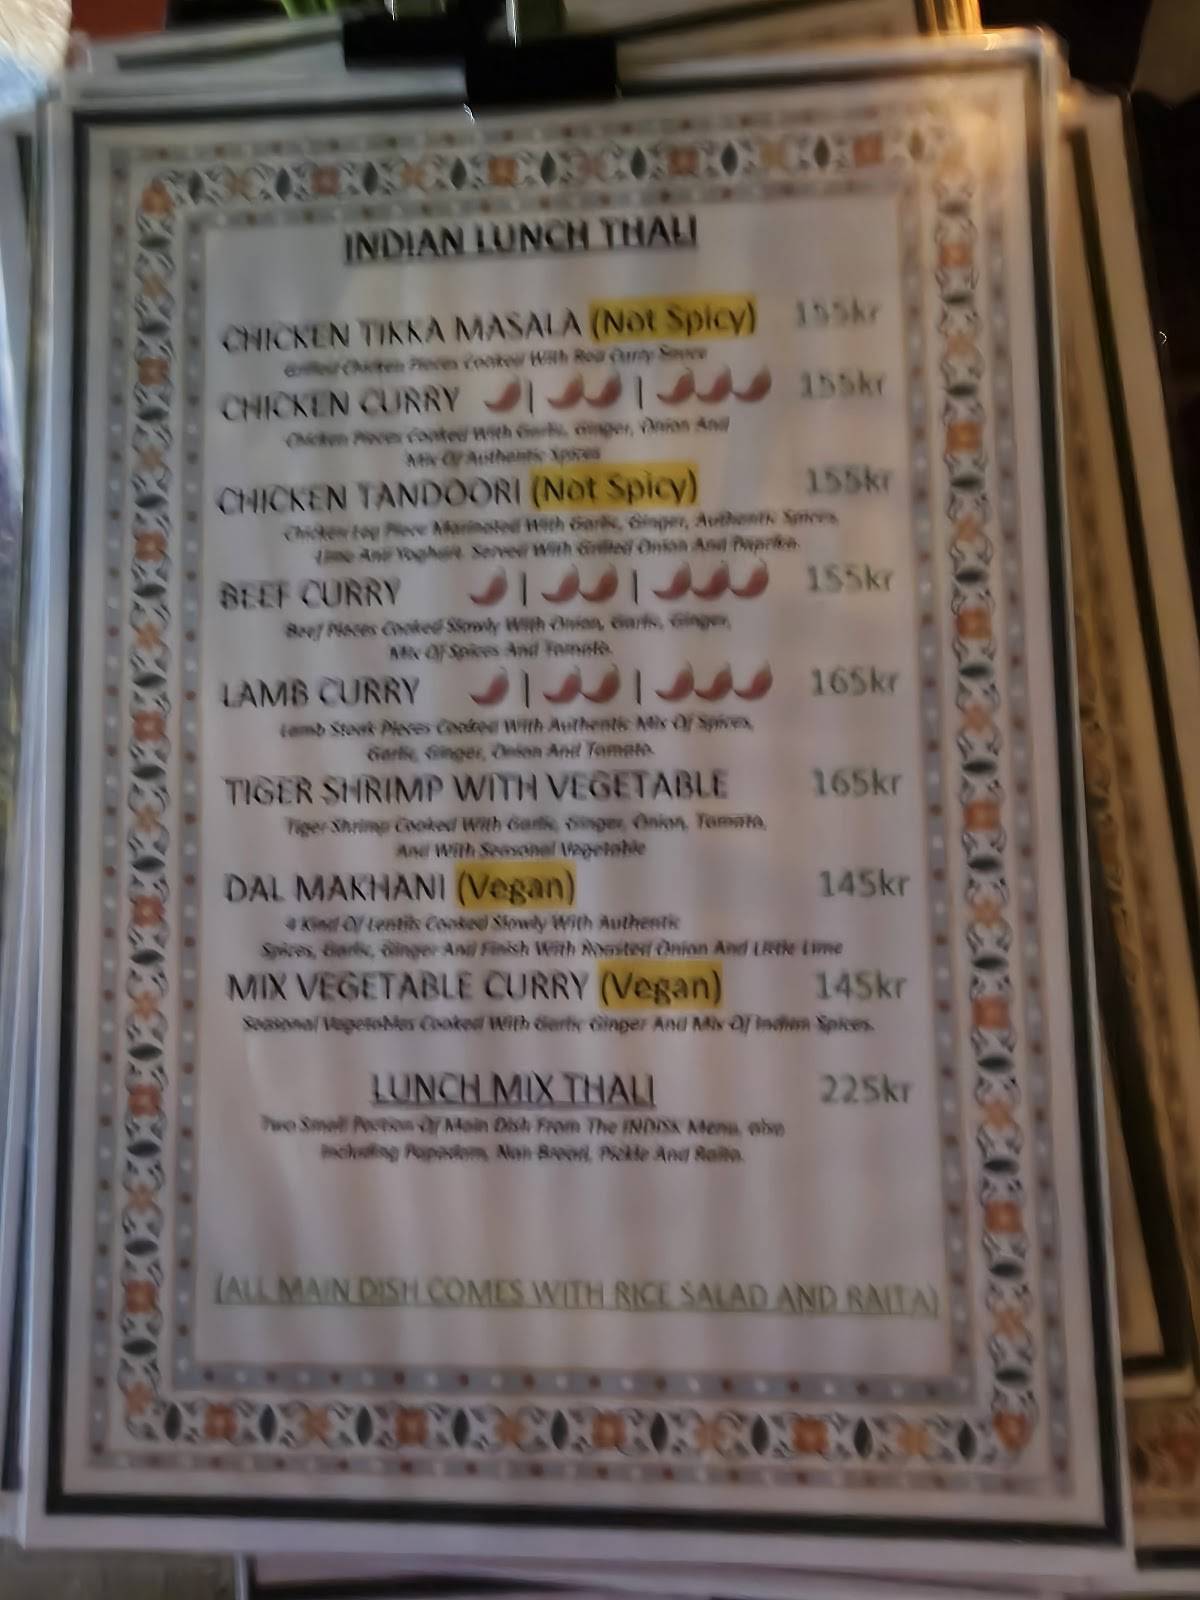 INDIAN LUNCH THALI
CHICKEN TIKKA MASALA (Not Spicy) 155kr
Grilled Chicken Pieces Cooked With Red Curry Sauce
CHICKEN CURRY | | 155kr
Chicken Pieces Cooked With Garlic, Ginger, Onion And
Mix Of Authentic Spices
CHICKEN TANDOORI (Not Spicy) 155kr
Chicken Leg Piece Marinated With Garlic, Ginger, Authentic Spices,
Lime And Yoghurt. Served With Grilled Onion And Paprika.
BEEF CURRY | | 155kr
Beef Pieces Cooked Slowly With Onion, Garlic, Ginger,
Mix Of Spices And Tomato.
LAMB CURRY | | 165kr
Lamb Steak Pieces Cooked With Authentic Mix Of Spices,
Garlic, Ginger, Onion And Tomato.
TIGER SHRIMP WITH VEGETABLE 165kr
Tiger Shrimp Cooked With Garlic, Ginger, Onion, Tomato,
And With Seasonal Vegetable
DAL MAKHANI (Vegan) 145kr
4 Kind Of Lentils Cooked Slowly With Authentic
Spices, Garlic, Ginger And Finish With Roasted Onion And Little Lime
MIX VEGETABLE CURRY (Vegan) 145kr
Seasonal Vegetables Cooked With Garlic Ginger And Mix Of Indian Spices.
LUNCH MIX THALI 225kr
Two Small Portion Of Main Dish From The INDISK Menu, also
Including Papadom, Nan Bread, Pickle And Raita.
(ALL MAIN DISH COMES WITH RICE SALAD AND RAITA)